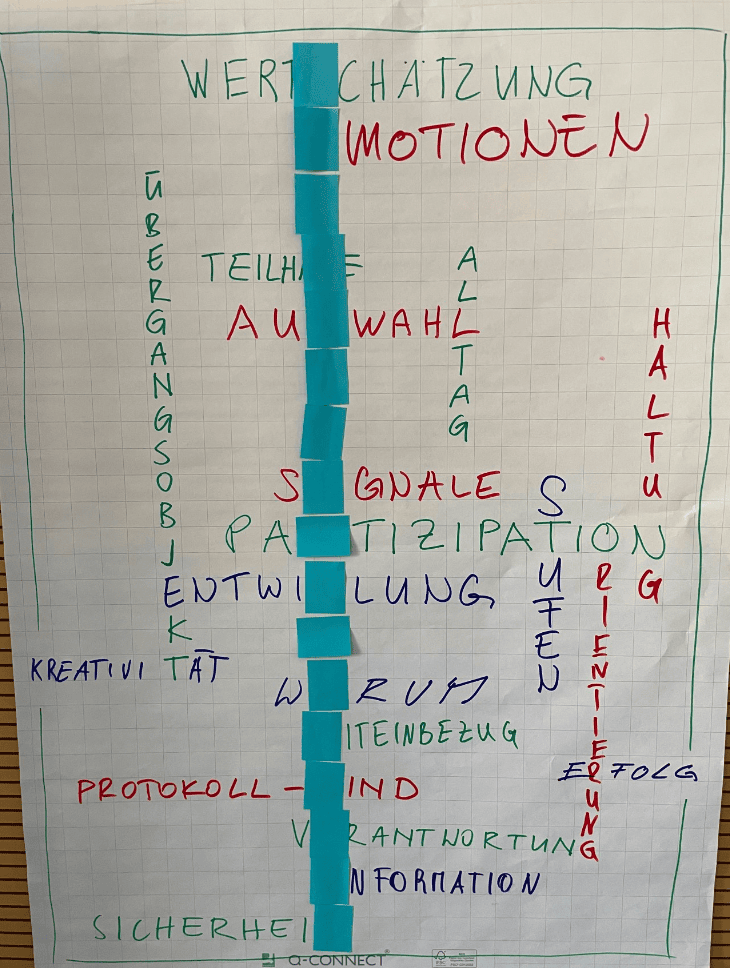 WERT CHÄTZUNG
MOTIONEN
ÜBERGANGSOBJEKT
TEILH E
ALLTAG
AU WAHL
HALTUNG
S GNALE
STUFEN
PA TIZIPATION
ENTWI LUNG
ORIENTIERUNG
KREATIVITÄT
W RUM
ITEINBEZUG
ERFOLG
PROTOKOLL- IND
V RANTWORTUNG
NFORMATION
SICHERHEI
a-CONNECT®
FSC